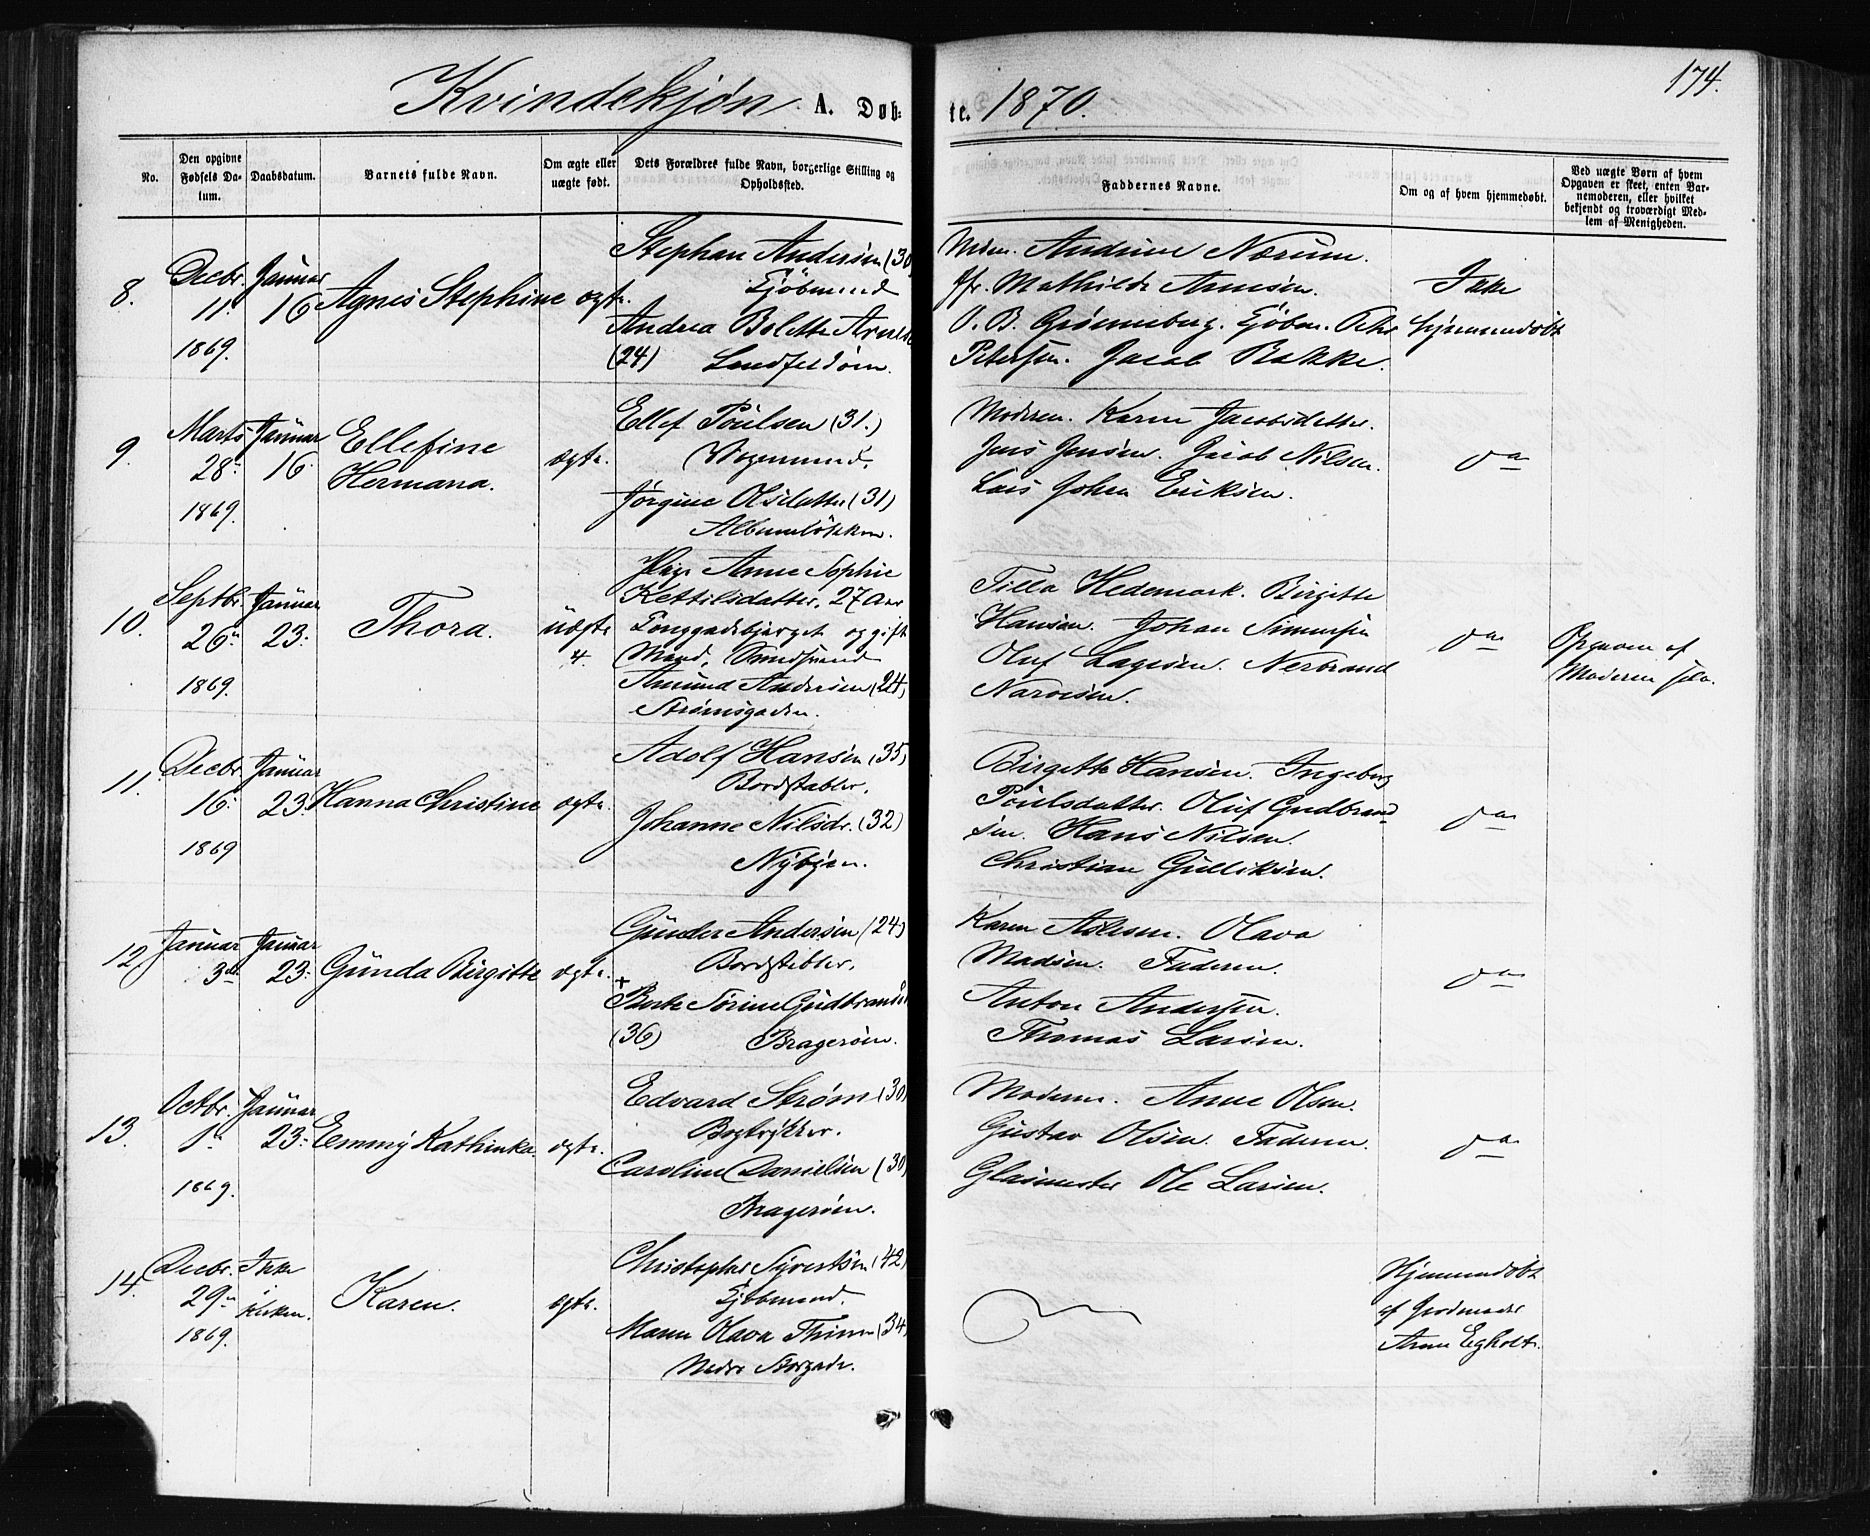 Kvindekjøn A. Døb- te. 1870.
174.
No.
Den opgivne Fødsels Da-
tum.
Daabsdatum.
Barnets fulde Navn.
Om ægte eller
uægte født.
Dets Forældres fulde Navn, borgerlige Stilling og
Opholdsted.
Faddernes Navne.
Om og af hvem hjemmedøbt.
Ved uægte Børn af hvem
Opgaven er skeet, enten Bar-
nemoderen, eller hvilket
bekjendt og troværdigt Med-
lem af Menigheden.
8.
Decbr.
11.
1869.
Januar
16
Agnes Stephine
ægte.
Stephan Andersen (30)
Sjöbmend
Andrea Bolette
(24)
Mathilde
O. B. Grønneberg.
Petersen. Jacob Bakke.
Ikke
hjemmedöbt
9.
Marts
28.
1869.
Januar
16.
Ellefine
Hermana.
ægte.
Ellef Poulsen (31.)
Vognmand,
Jørgine Olsdatter (31)
Albumsløkken.
Moderen. Karen Jacobsdatter.
Jens Jensen. Jacob Nilsen.
Lars Johan Eriksen.
do
10.
Septbr.
26
1869.
Januar
23.
Thora.
uægte
4.
Pige Anne Sophie
Kettilsdatter, 27 Aar
og gift
Mand,
Amund Andersen (24)
Strømsgaden.
Tilla Hedemark. Birgitte
Hansen. Johan Simensen
Oluf Lagesen.
Narvesen.
do
Opgaven af
Moderen selv.
11.
Decbr.
16.
1869
Januar
23.
Hanna Christine
ægte.
Adolf Hansen (35)
Bordstabler,
Johanne Nilsdr. (32)
Nybyen.
Birgitte Hansen. Ingeborg
Poulsdatter. Oluf Gudbrand-
sen. Hans Nilsen.
Christian Gulliksen.
do
12.
Januar
3die
Januar
23.
Gunda Birgitte
ægte.
Gunder Andersen (24)
Bordstabler.
+
Berte Sørine Gudbrands
(36) Bragerøen.
Karen Aslesen. Olava
Madsen. Faderen.
Anton Andersen.
Thomas Larsen.
do
13.
Octbr.
1
1869.
Januar
23.
Emmy Kathinka.
ægte.
Edvard Strøm (30)
Bogtrykker.
Caroline Danielsen (30)
Bragerøen.
Moderen. Anne Olsen.
Gustav Olsen. Faderen
Glasmester Ole Larsen.
do
14.
Decbr.
29
1869.
Ikke
i
Kirken.
Karen.
ægte.
Christopher Syvertsen (42)
Sjöbmand.
Maren Olava (34)
Nedre Storgade.
Hjemmedöbt
af Jordmoder
Anne Egholt.